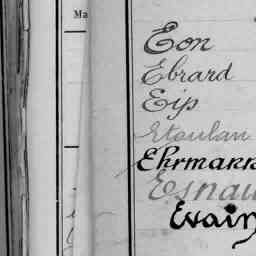 Ma
Eon
Ebrard
Eip
Etoulan
Ehrmann
Esnau
Evain